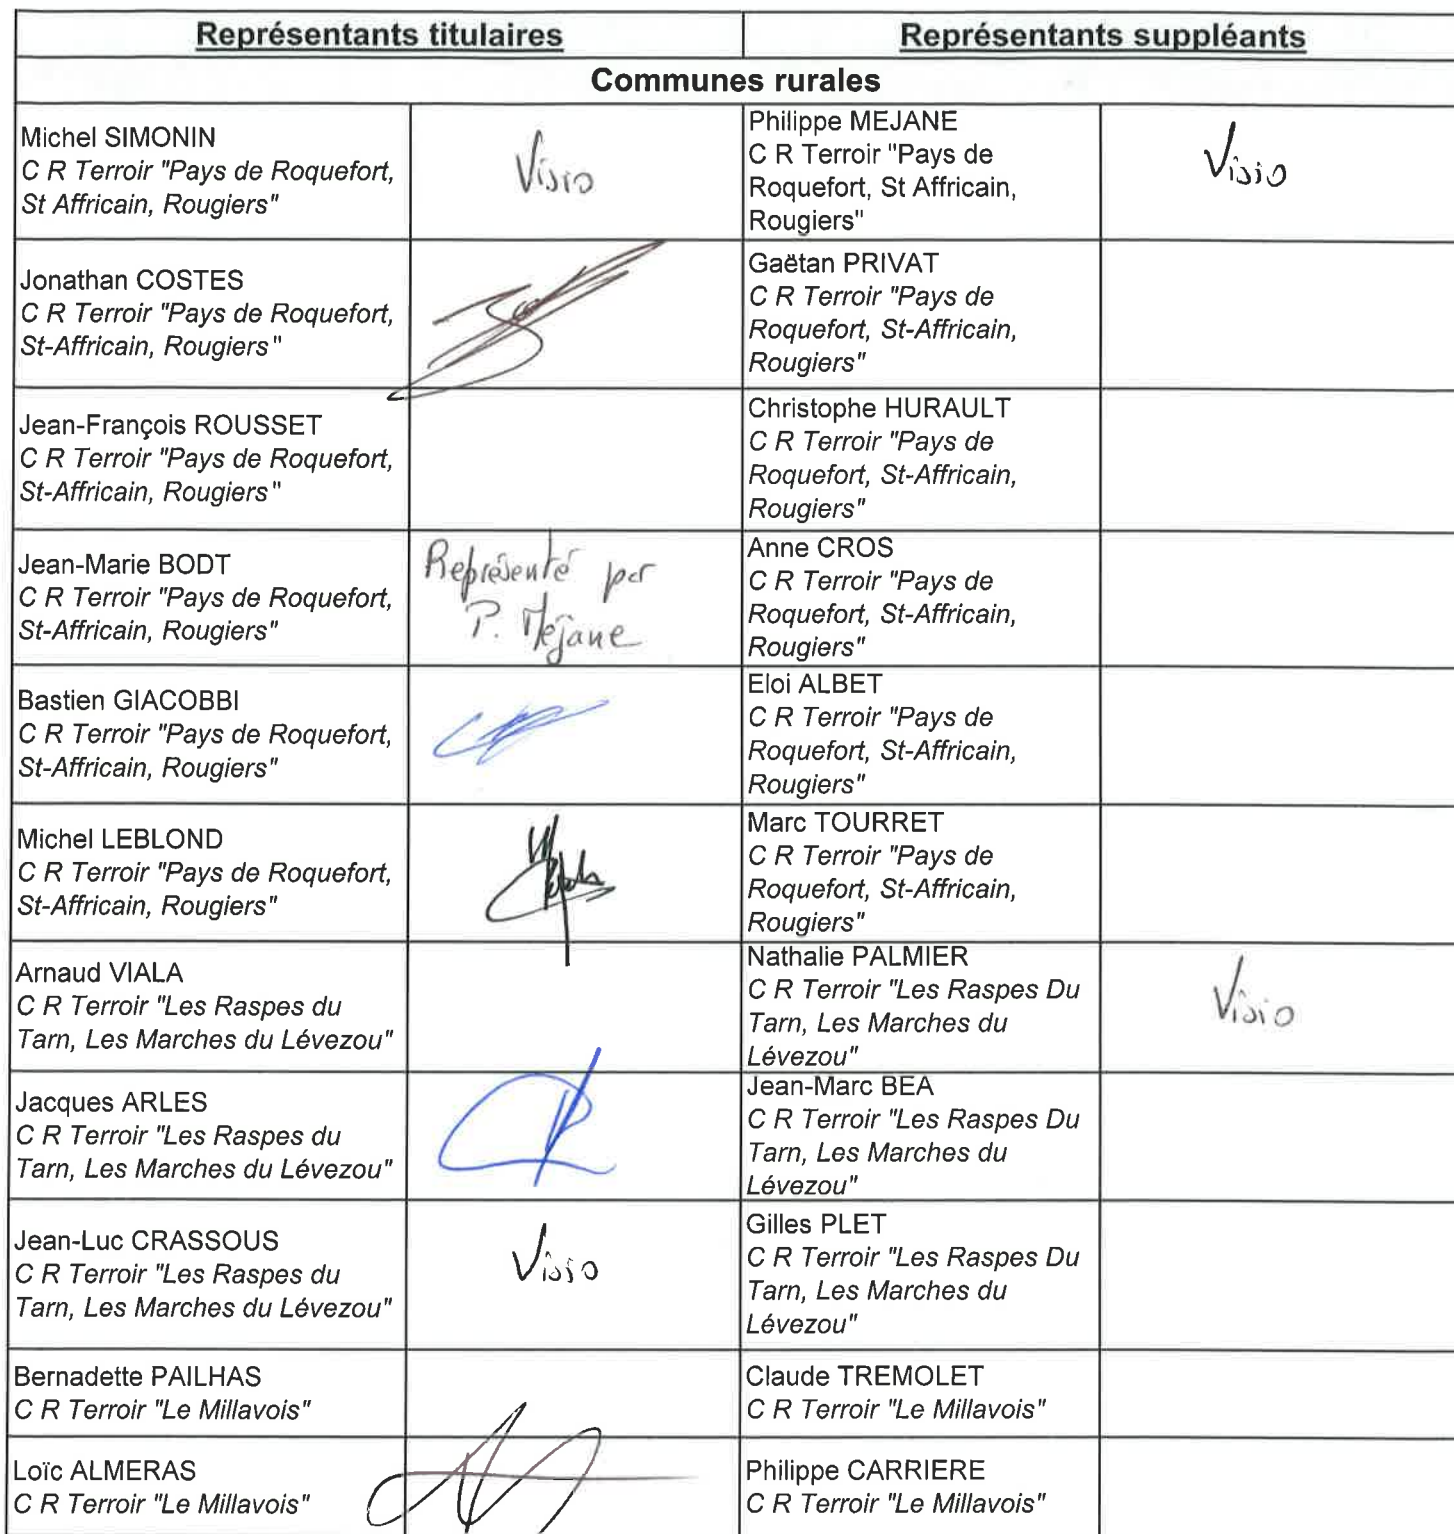 Représentants titulaires
Représentants suppléants
Communes rurales
Michel SIMONIN
C R Terroir "Pays de Roquefort,
St Affricain, Rougiers"
Visio
Philippe MEJANE
C R Terroir "Pays de
Roquefort, St Affricain,
Rougiers"
Visio
Jonathan COSTES
C R Terroir "Pays de Roquefort,
St-Affricain, Rougiers"
Gaëtan PRIVAT
C R Terroir "Pays de
Roquefort, St-Affricain,
Rougiers"
Jean-François ROUSSET
C R Terroir "Pays de Roquefort,
St-Affricain, Rougiers"
Christophe HURAULT
C R Terroir "Pays de
Roquefort, St-Affricain,
Rougiers"
Jean-Marie BODT
C R Terroir "Pays de Roquefort,
St-Affricain, Rougiers"
Représenté par
P. Méjane
Anne CROS
C R Terroir "Pays de
Roquefort, St-Affricain,
Rougiers"
Bastien GIACOBBI
C R Terroir "Pays de Roquefort,
St-Affricain, Rougiers"
Eloi ALBET
C R Terroir "Pays de
Roquefort, St-Affricain,
Rougiers"
Michel LEBLOND
C R Terroir "Pays de Roquefort,
St-Affricain, Rougiers"
Marc TOURRET
C R Terroir "Pays de
Roquefort, St-Affricain,
Rougiers"
Arnaud VIALA
C R Terroir "Les Raspes du
Tarn, Les Marches du Lévezou"
Nathalie PALMIER
C R Terroir "Les Raspes Du
Tarn, Les Marches du
Lévezou"
Visio
Jacques ARLES
C R Terroir "Les Raspes du
Tarn, Les Marches du Lévezou"
Jean-Marc BEA
C R Terroir "Les Raspes Du
Tarn, Les Marches du
Lévezou"
Jean-Luc CRASSOUS
C R Terroir "Les Raspes du
Tarn, Les Marches du Lévezou"
Visio
Gilles PLET
C R Terroir "Les Raspes Du
Tarn, Les Marches du
Lévezou"
Bernadette PAILHAS
C R Terroir "Le Millavois"
Claude TREMOLET
C R Terroir "Le Millavois"
Loïc ALMERAS
C R Terroir "Le Millavois"
Philippe CARRIERE
C R Terroir "Le Millavois"